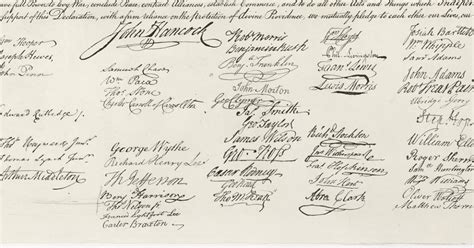 full Power to levy War, conclude Peace, contract Alliances, establish Commerce, and to do all other Acts and Things which Indepen
support of this Declaration, with a firm reliance on the protection of divine Providence, we mutually pledge to each other our Lives, our
John Hancock
Wm Hooper
Joseph Hewes,
John Penn
Edward Rutledge /.
Thos Heyward Junr.
Thomas Lynch Junr.
Arthur Middleton
Samuel Chase
Wm Paca
Thos Stone
Charles Carroll of Carrollton
George Wythe
Richard Henry Lee
Th Jefferson
Benj Harrison
Thos Nelson jr.
Francis Lightfoot Lee
Carter Braxton
Robt Morris
Benjamin Rush
Benj. Franklin
John Morton
Geo Clymer
Jas. Smith
Geo. Taylor
James Wilson
Geo. Ross
Caesar Rodney
Geo Read
Tho M:Kean
Phil. Livingston
Frans. Lewis
Lewis Morris
Richd. Stockton
Jno Witherspoon
Fras. Hopkinson
John Hart
Abra Clark
Josiah Bartlett
Wm Whipple
Saml Adams
John Adams
Robt Treat Paine
Elbridge Gerry
Step Hop
William Elle
Roger Sherm
Saml Huntington
Wm Williams
Oliver Wolcott
Matthew Thornt